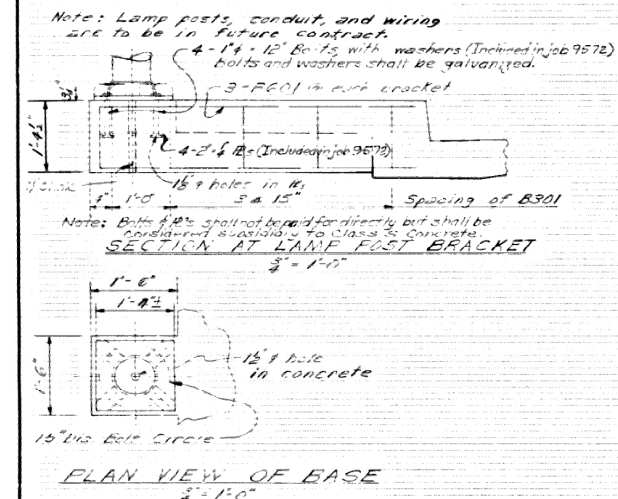 Note: Lamp posts, conduit, and wiring
are to be in future contract.
4-1"φ x 12" Bolts, with washers (Included in job 9572)
bolts and washers shall be galvanized.
3-F601 in each bracket
1'-4½"
4-2"φ ℞s (Included in job 9572)
1½"φ holes in ℞s
1'-0"
3 @ 15"
Spacing of B301
Note: Bolts & ℞'s shall not be paid for directly but shall be
considered subsidiary to Class S Concrete.
SECTION AT LAMP POST BRACKET
¾" = 1'-0"
1'-6"
1'-4"±
1'-6"
1½"φ hole
in concrete
15" Dia. Bolt Circle
PLAN VIEW OF BASE
¾" = 1'-0"